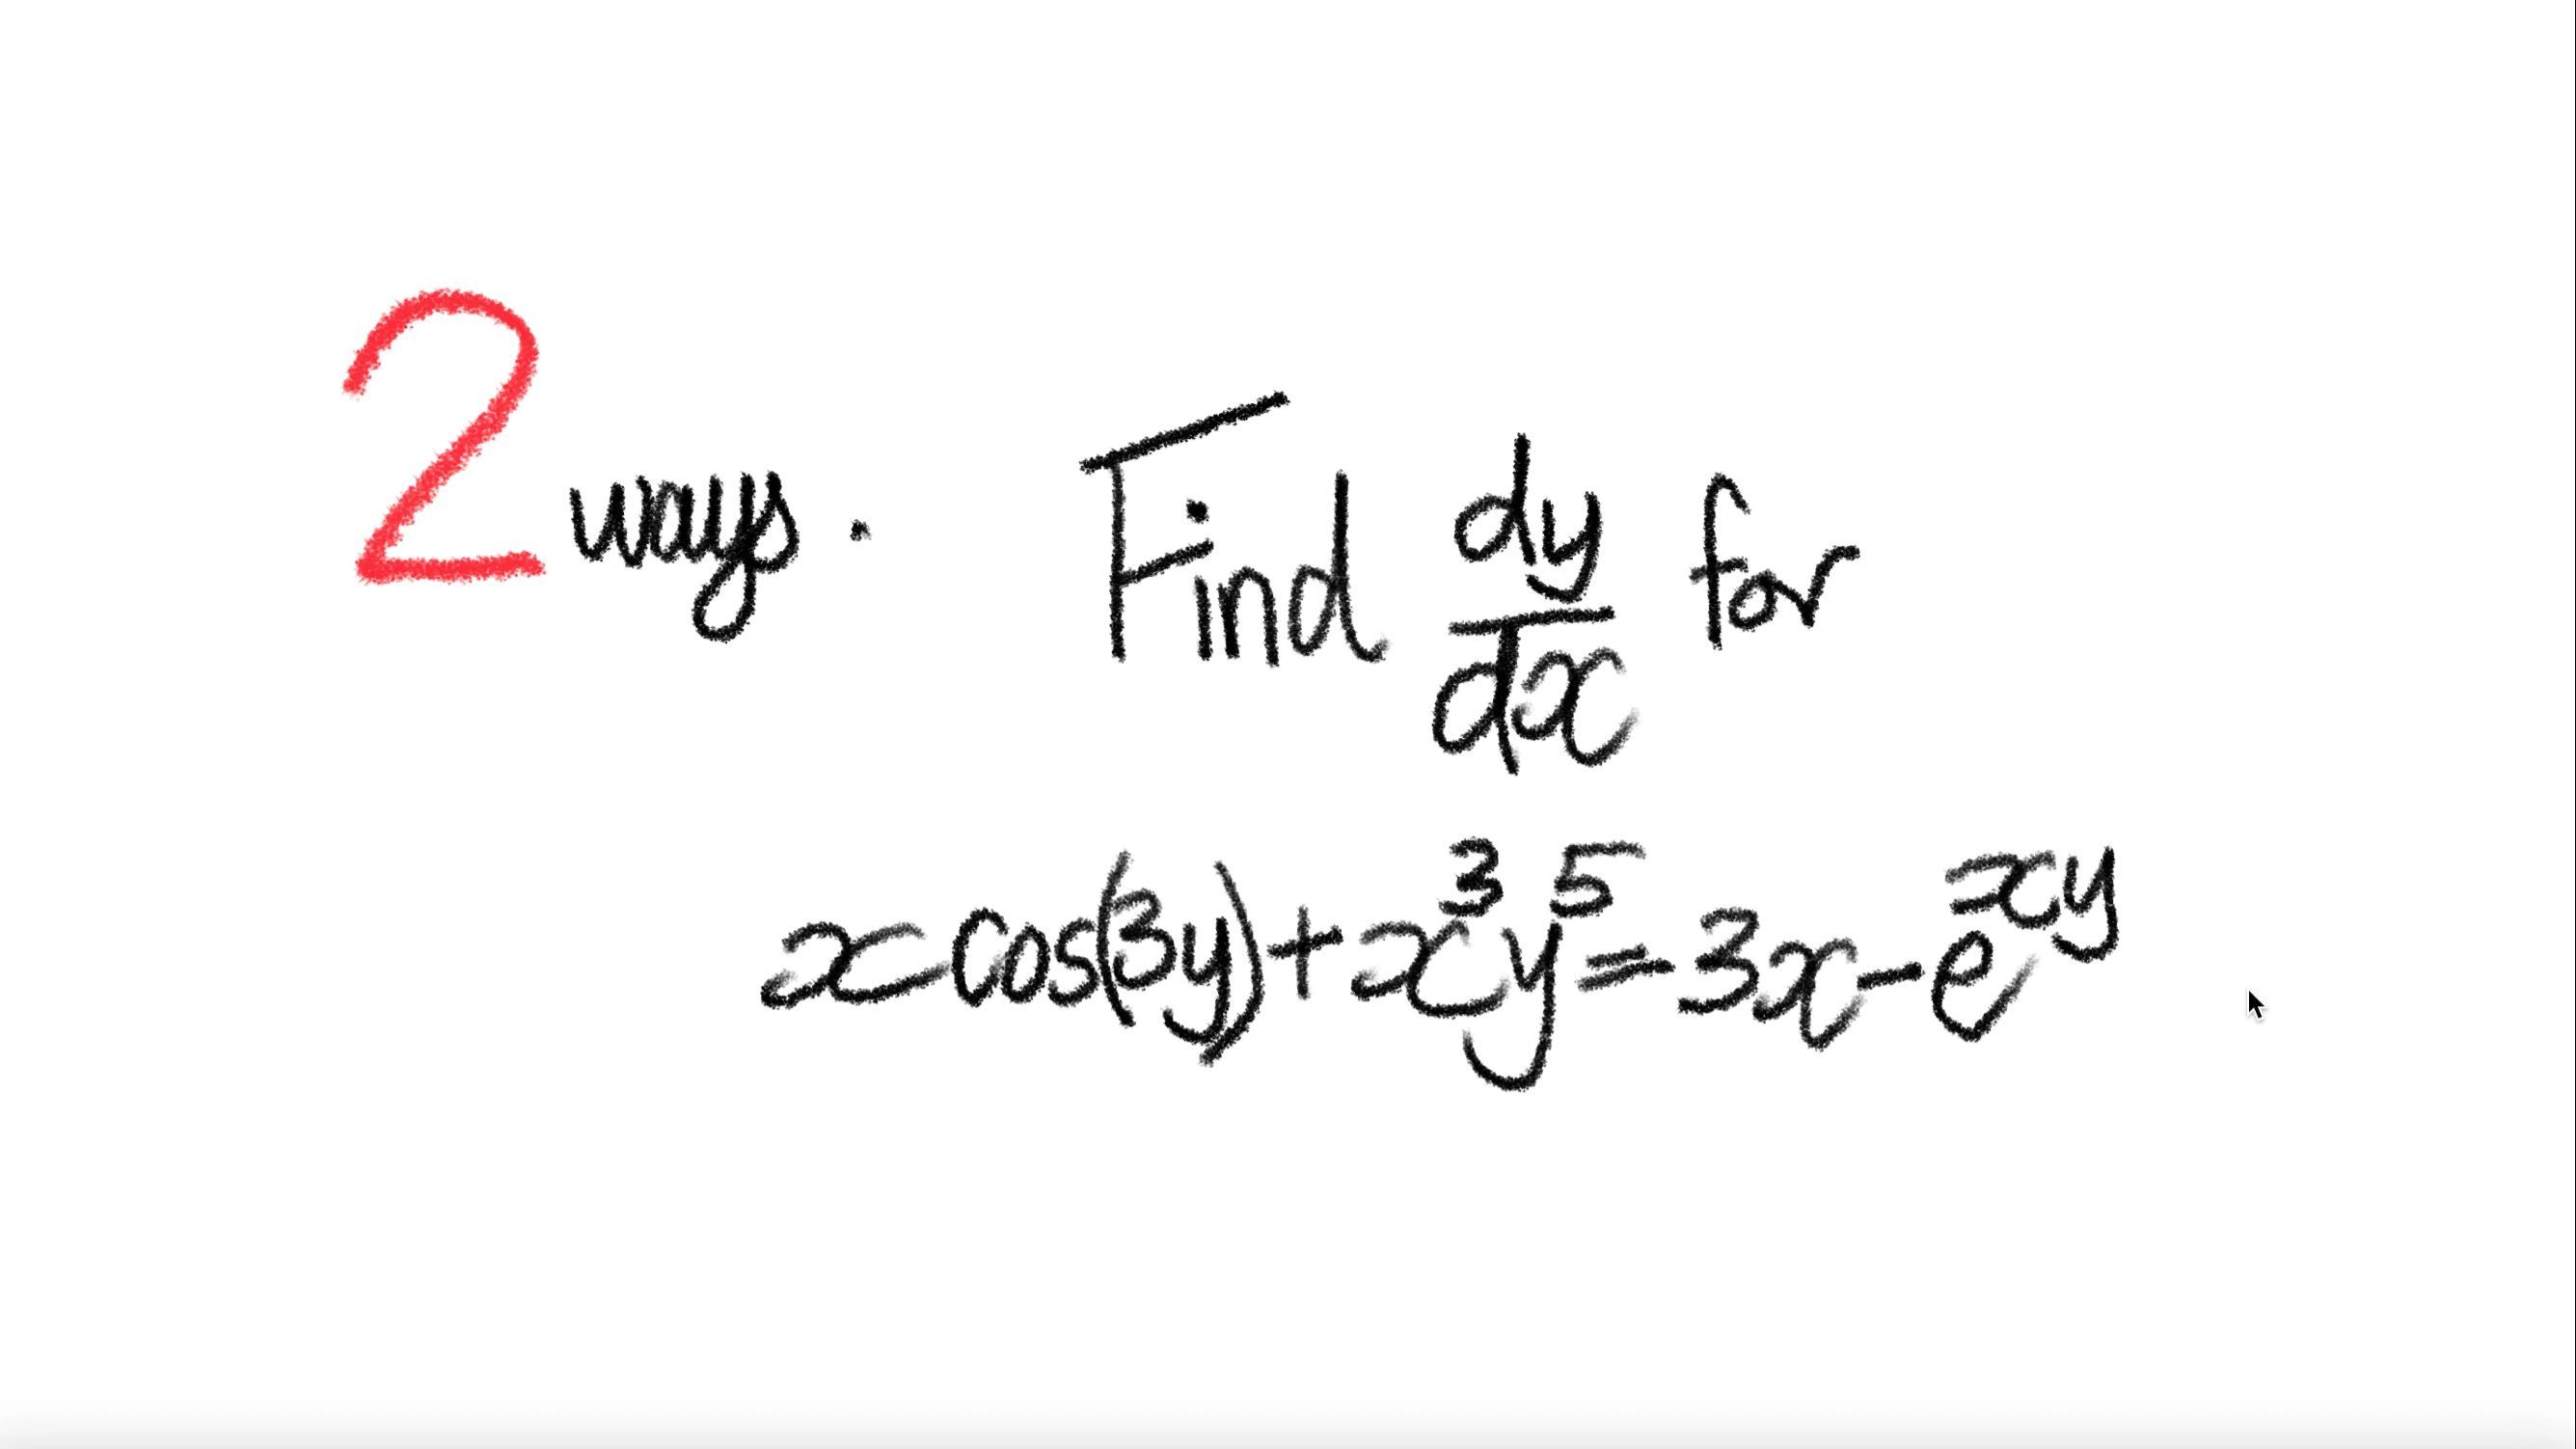 2 ways. Find dy/dx for
x cos(3y) + x³y⁵ = 3x - e^xy